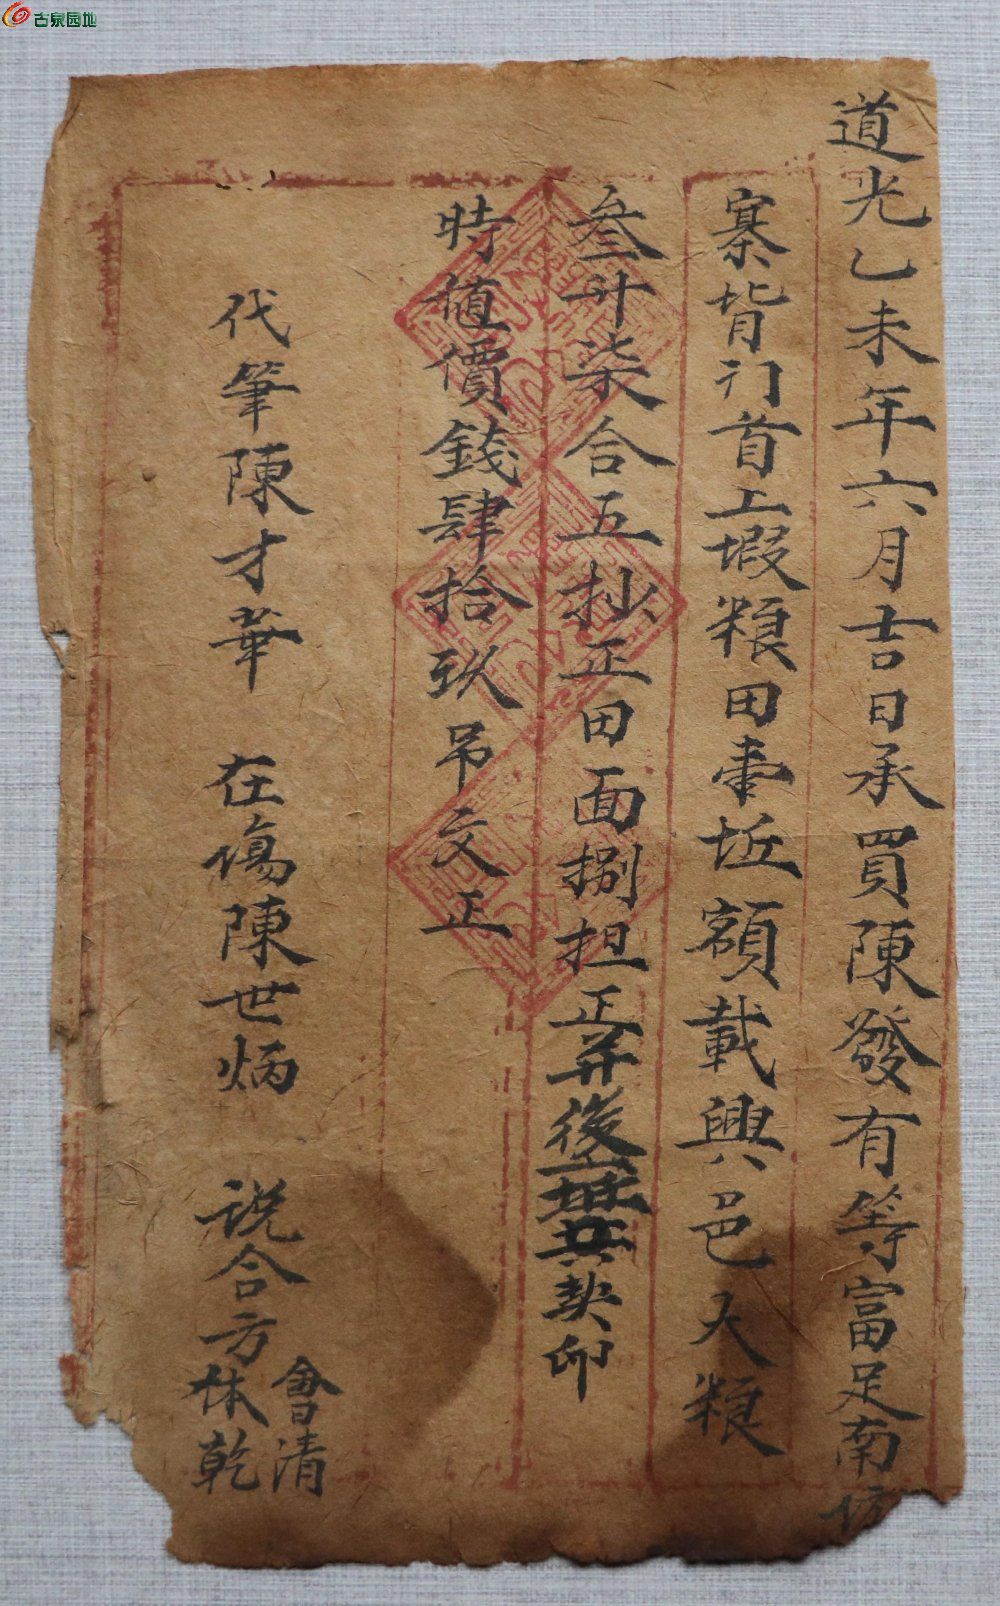 古泉园地
道光乙未年六月吉日承買陳發有等富足南坊
寨背门首上塅粮田壹坵額載興邑大粮
叁升柒合五抄正田面捌担正弄後無契卯
時值價錢肆拾玖吊文正
代筆陳才華 在傷陳世炳 说合方
會清
休乾